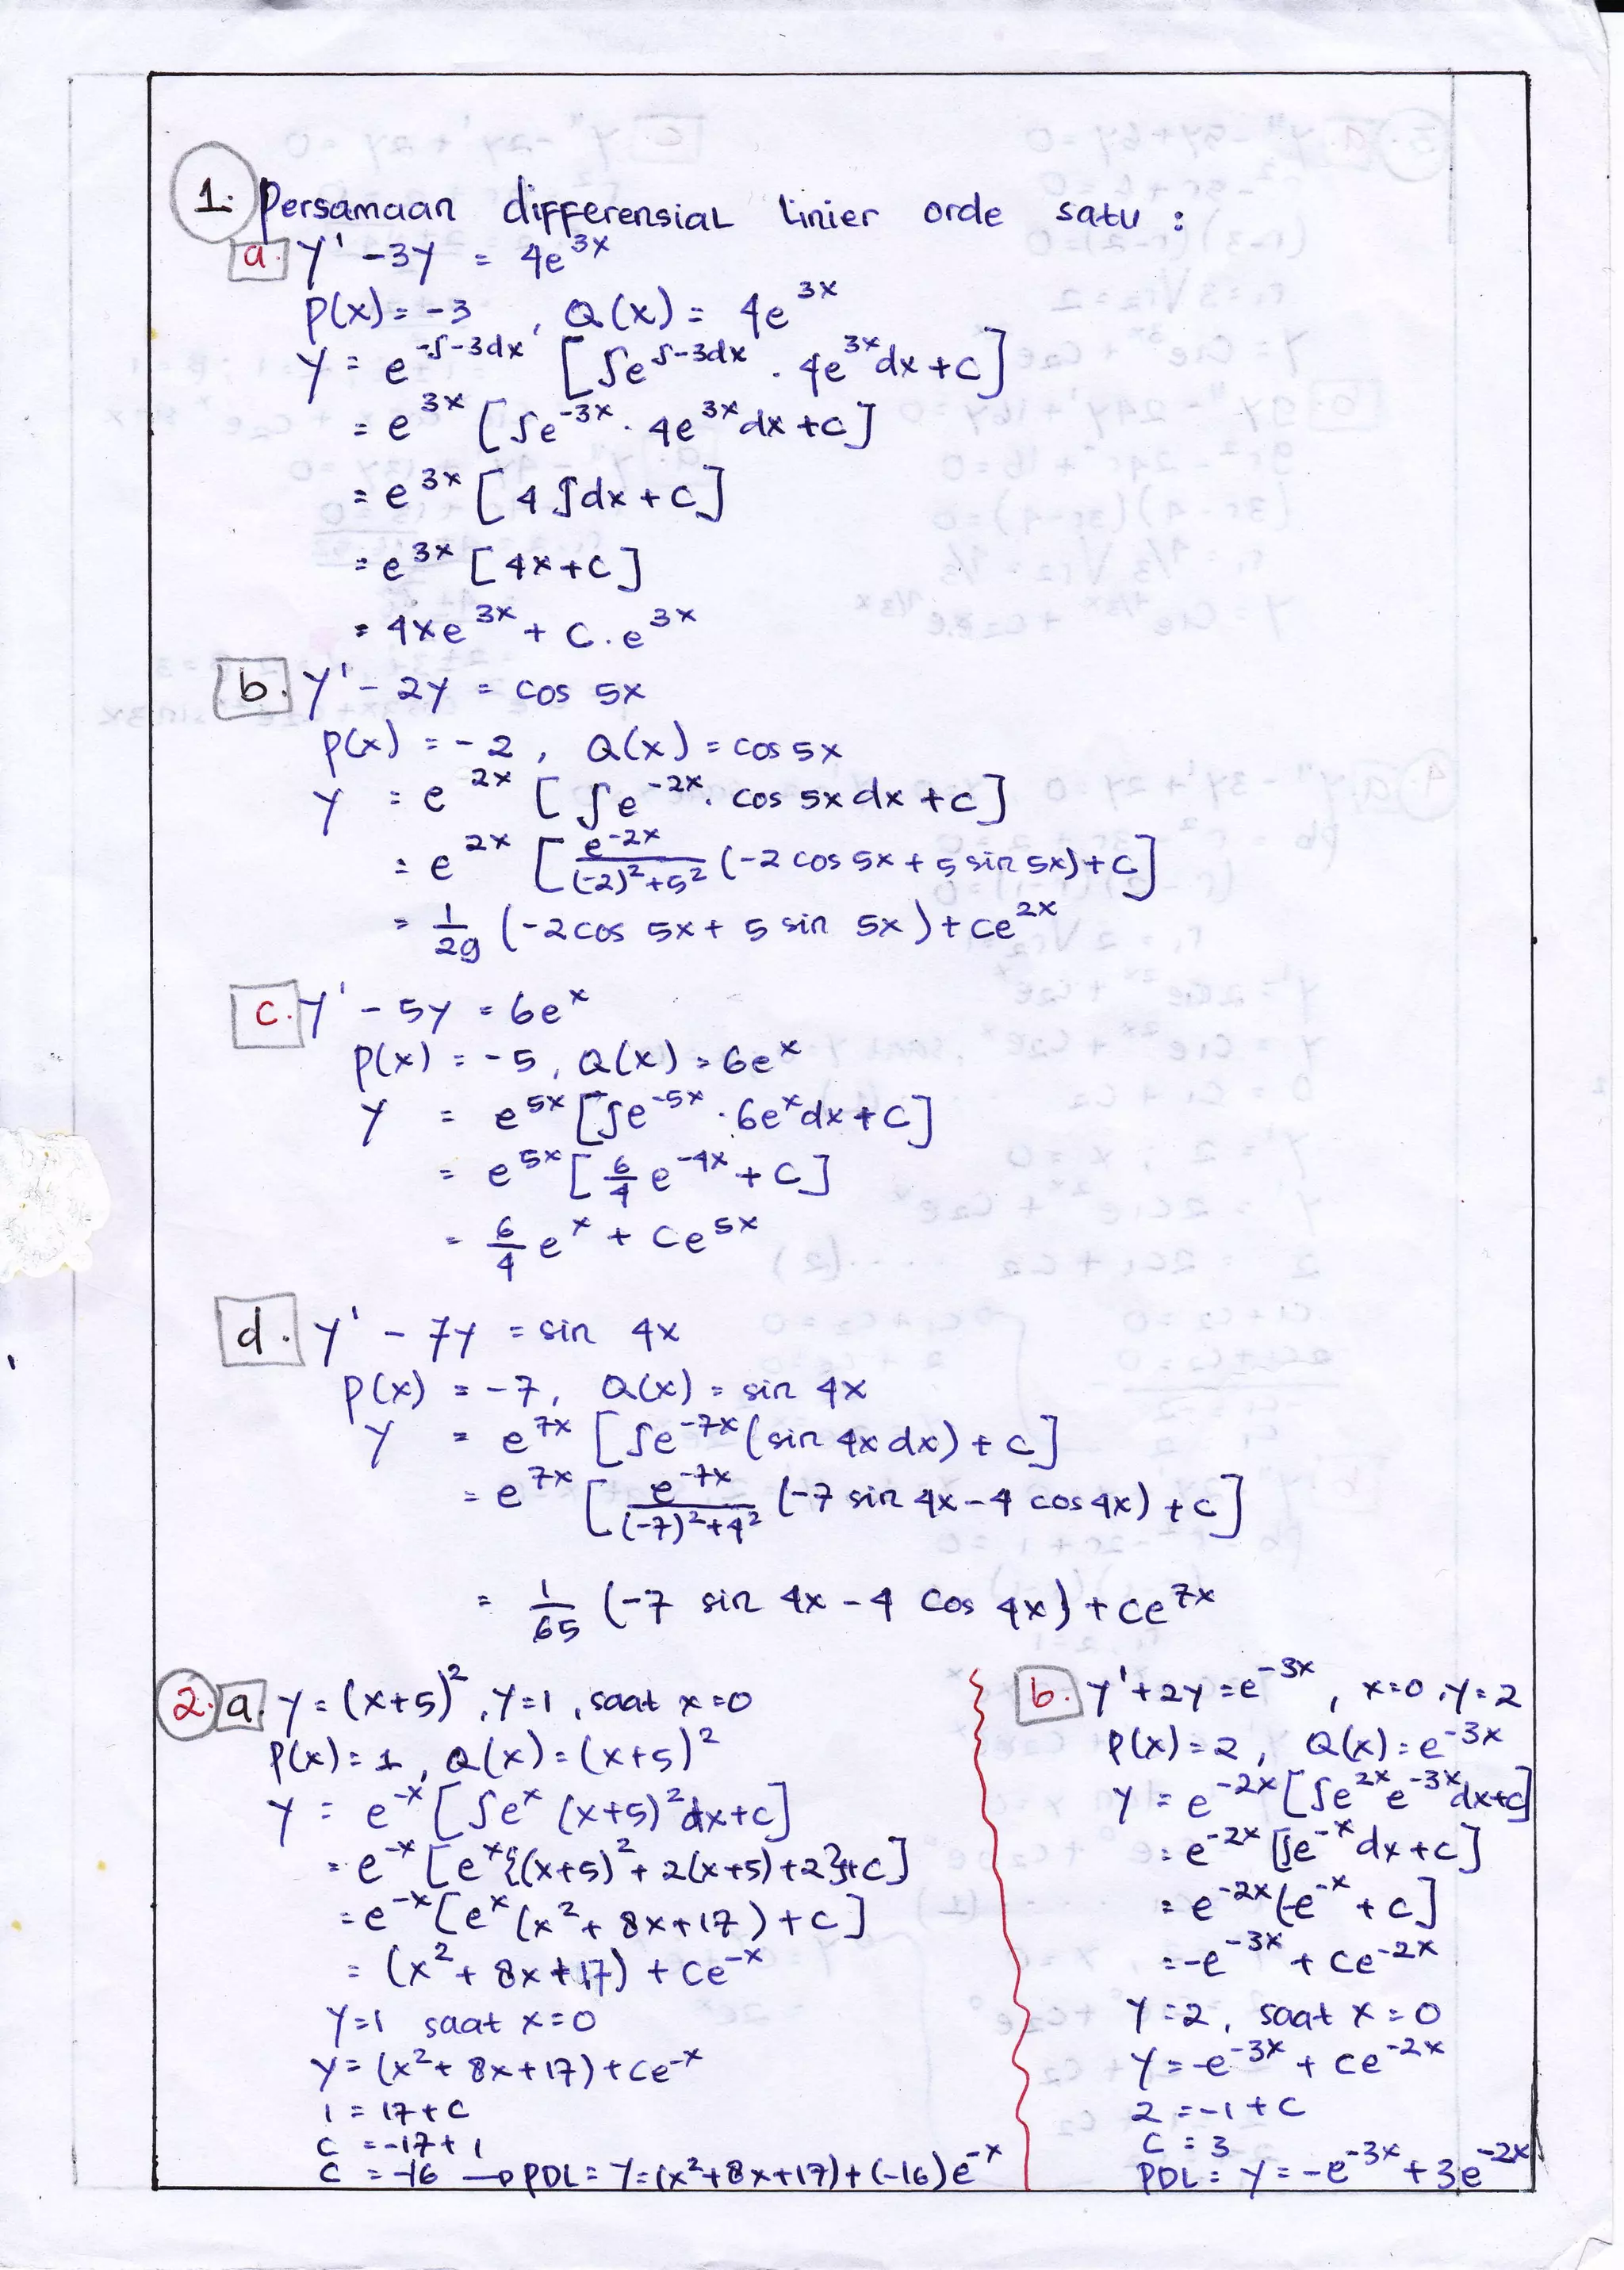 1. Persamaan differensial linier orde satu :
a. y' - 3y = 4e^{3x}
P(x) = -3 , Q(x) = 4e^{3x}
y = e^{-∫-3dx} [∫e^{∫-3dx} . 4e^{3x}dx + c]
= e^{3x} [∫e^{-3x} . 4e^{3x} dx + c]
= e^{3x} [4 ∫dx + c]
= e^{3x} [4x + c]
= 4xe^{3x} + c . e^{3x}
b. y' - 2y = cos 5x
P(x) = -2 , Q(x) = cos 5x
y = e^{2x} [∫e^{-2x} . cos 5x dx + c]
= e^{2x} [e^{-2x}/((-2)²+5²) (-2 cos 5x + 5 sin 5x) + c]
= 1/29 (-2 cos 5x + 5 sin 5x) + ce^{2x}
c. y' - 5y = 6e^x
P(x) = -5 , Q(x) = 6e^x
y = e^{5x} [∫e^{-5x} . 6e^x dx + c]
= e^{5x} [6/4 e^{-4x} + c]
= 6/4 e^x + ce^{5x}
d. y' - 7y = sin 4x
P(x) = -7 , Q(x) = sin 4x
y = e^{7x} [∫e^{-7x} (sin 4x dx) + c]
= e^{7x} [e^{-7x}/((-7)²+4²) (-7 sin 4x - 4 cos 4x) + c]
= 1/65 (-7 sin 4x - 4 cos 4x) + ce^{7x}
2. a. y = (x+5)² , y=1 , saat x=0
P(x) = 1 , Q(x) = (x+5)²
y = e^{-x} [∫e^x (x+5)² dx + c]
= e^{-x} [e^x {(x+5)² + 2(x+5) + 2} + c]
= e^{-x} [e^x (x² + 8x + 17) + c]
= (x² + 8x + 17) + ce^{-x}
y=1 saat x=0
y = (x² + 8x + 17) + ce^{-x}
1 = 17 + c
c = -17 + 1
c = -16 → PDL = y = (x² + 8x + 17) + (-16) e^{-x}
b. y' + 2y = e^{-3x} , x=0 , y=2
P(x) = 2 , Q(x) = e^{-3x}
y = e^{-2x} [∫e^{2x} e^{-3x} dx + c]
= e^{-2x} [∫e^{-x} dx + c]
= e^{-2x} [-e^{-x} + c]
= -e^{-3x} + ce^{-2x}
y = 2 , saat x = 0
y = -e^{-3x} + ce^{-2x}
2 = -1 + c
c = 3
PDL = y = -e^{-3x} + 3e^{-2x}